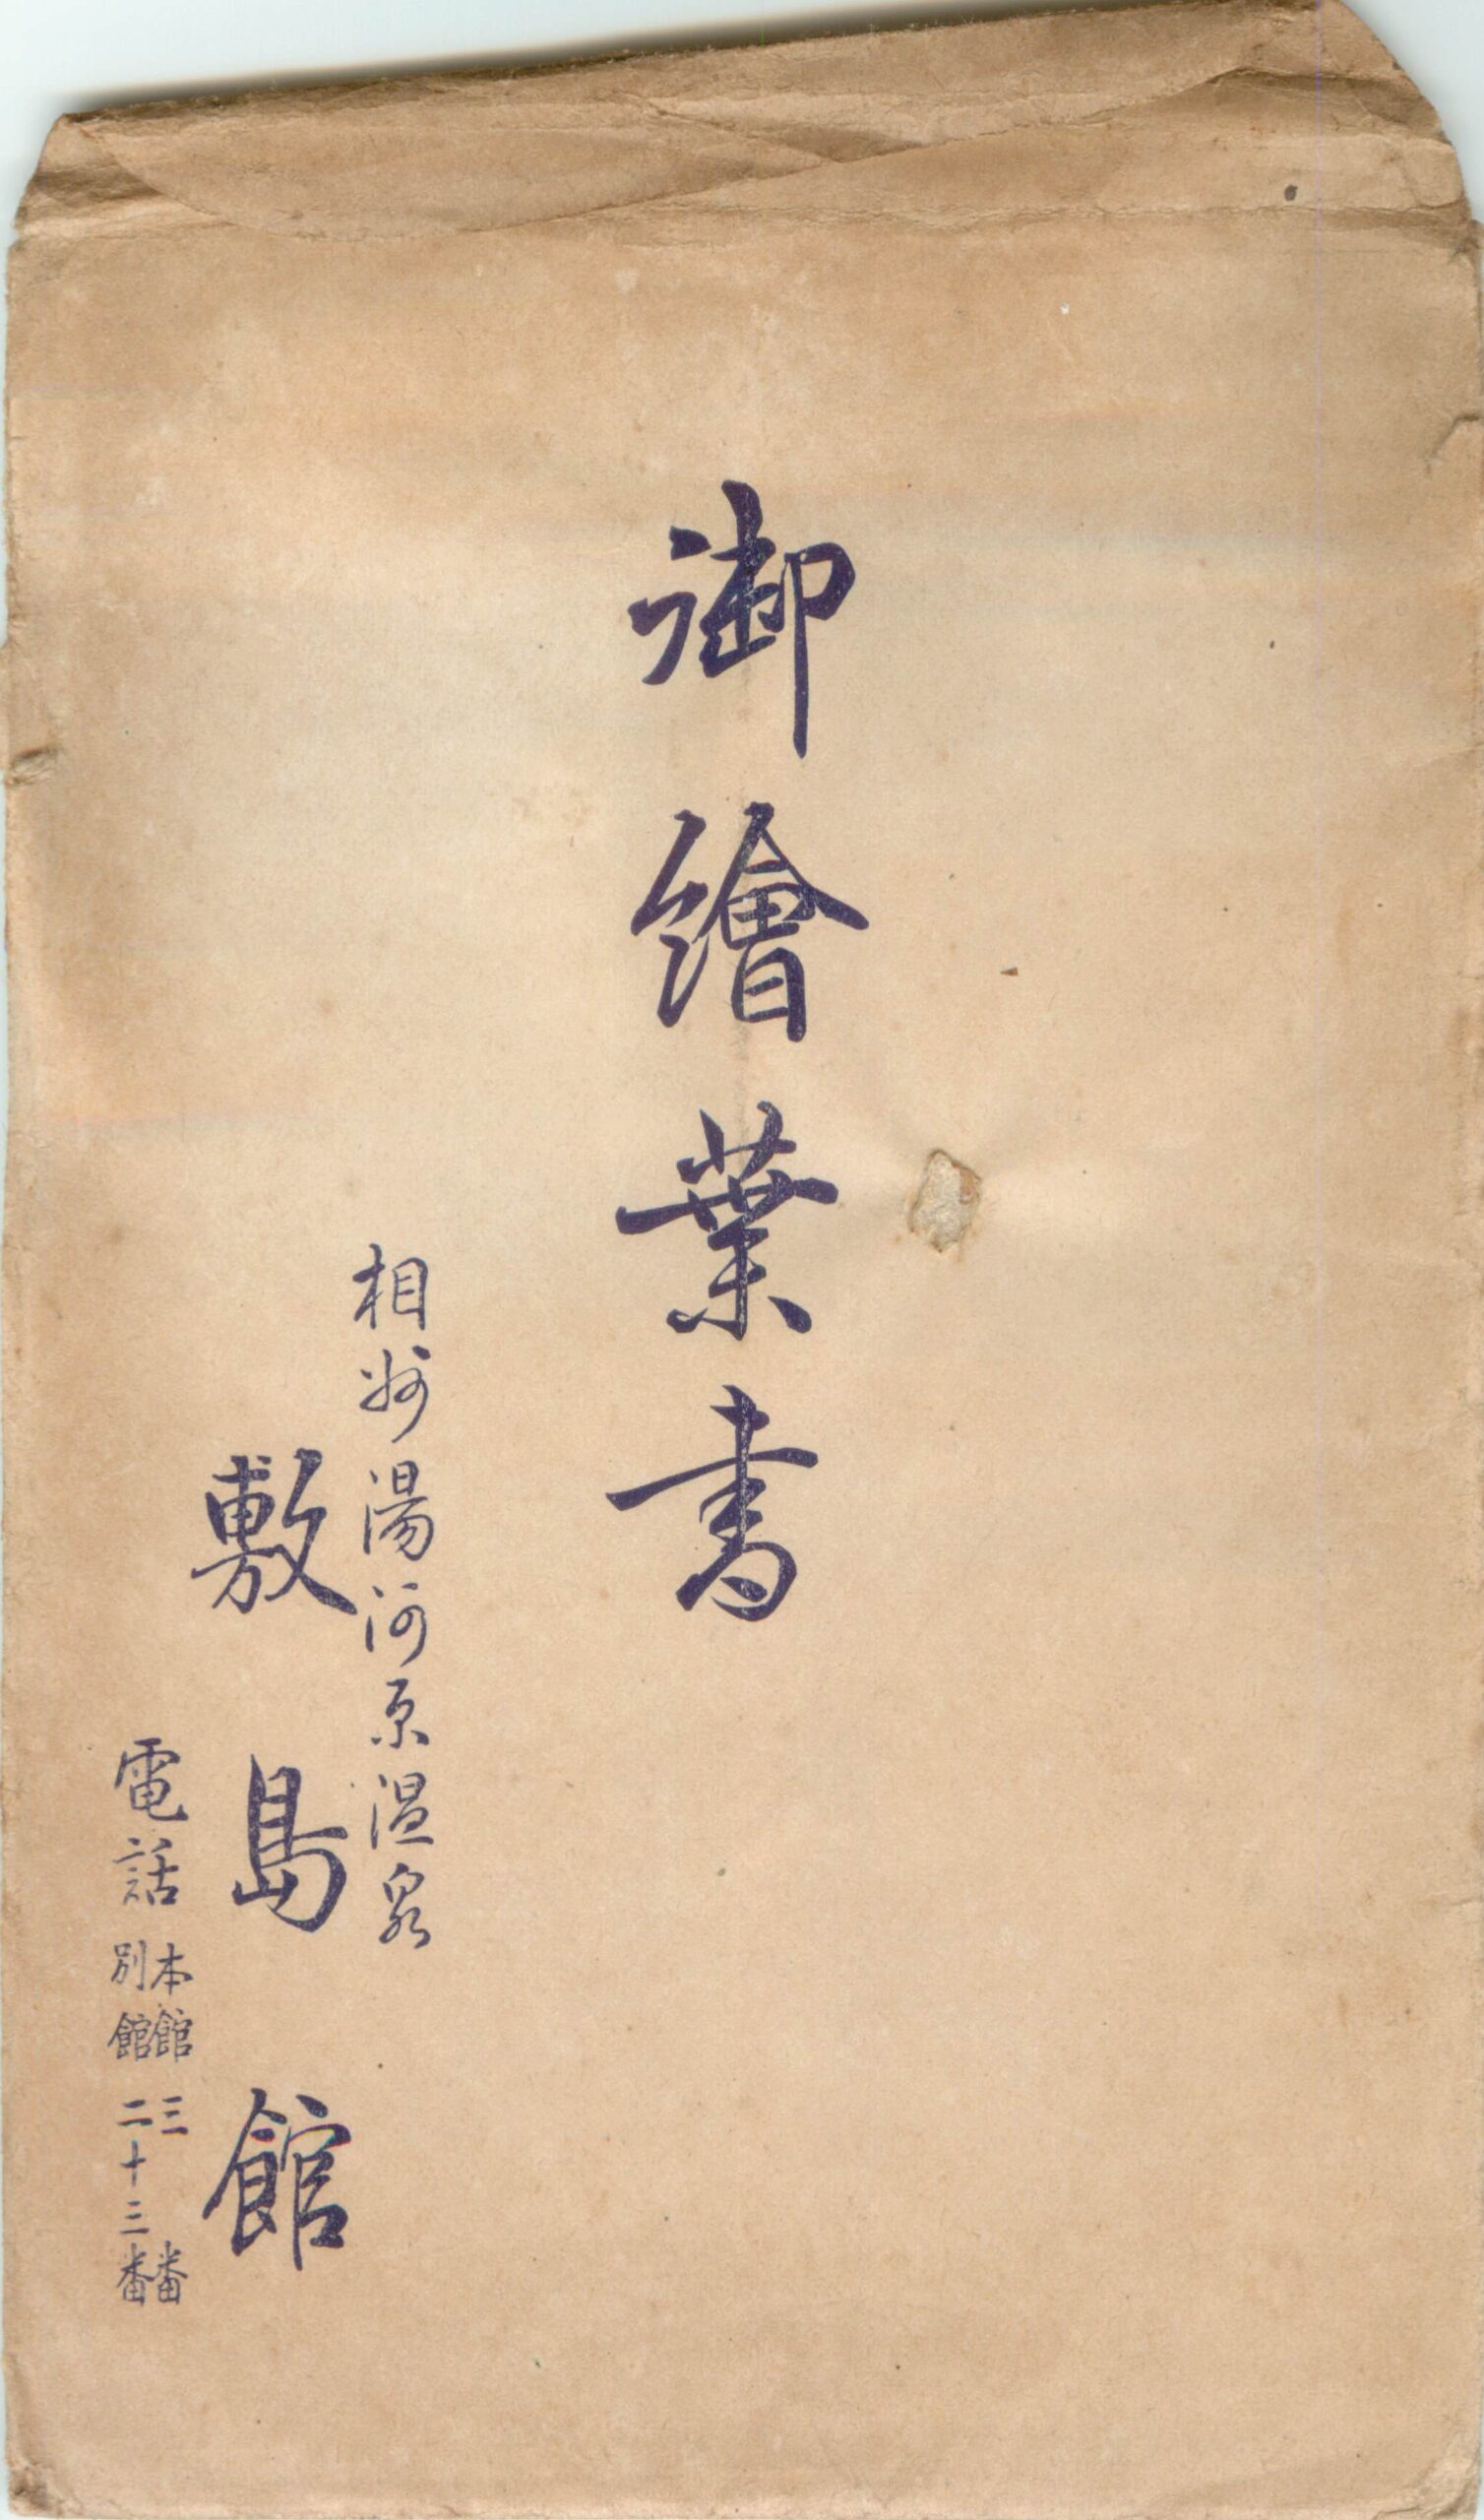 御繪葉書
相州湯河原温泉
敷島館
電話
本館 三番
別館 二十三番